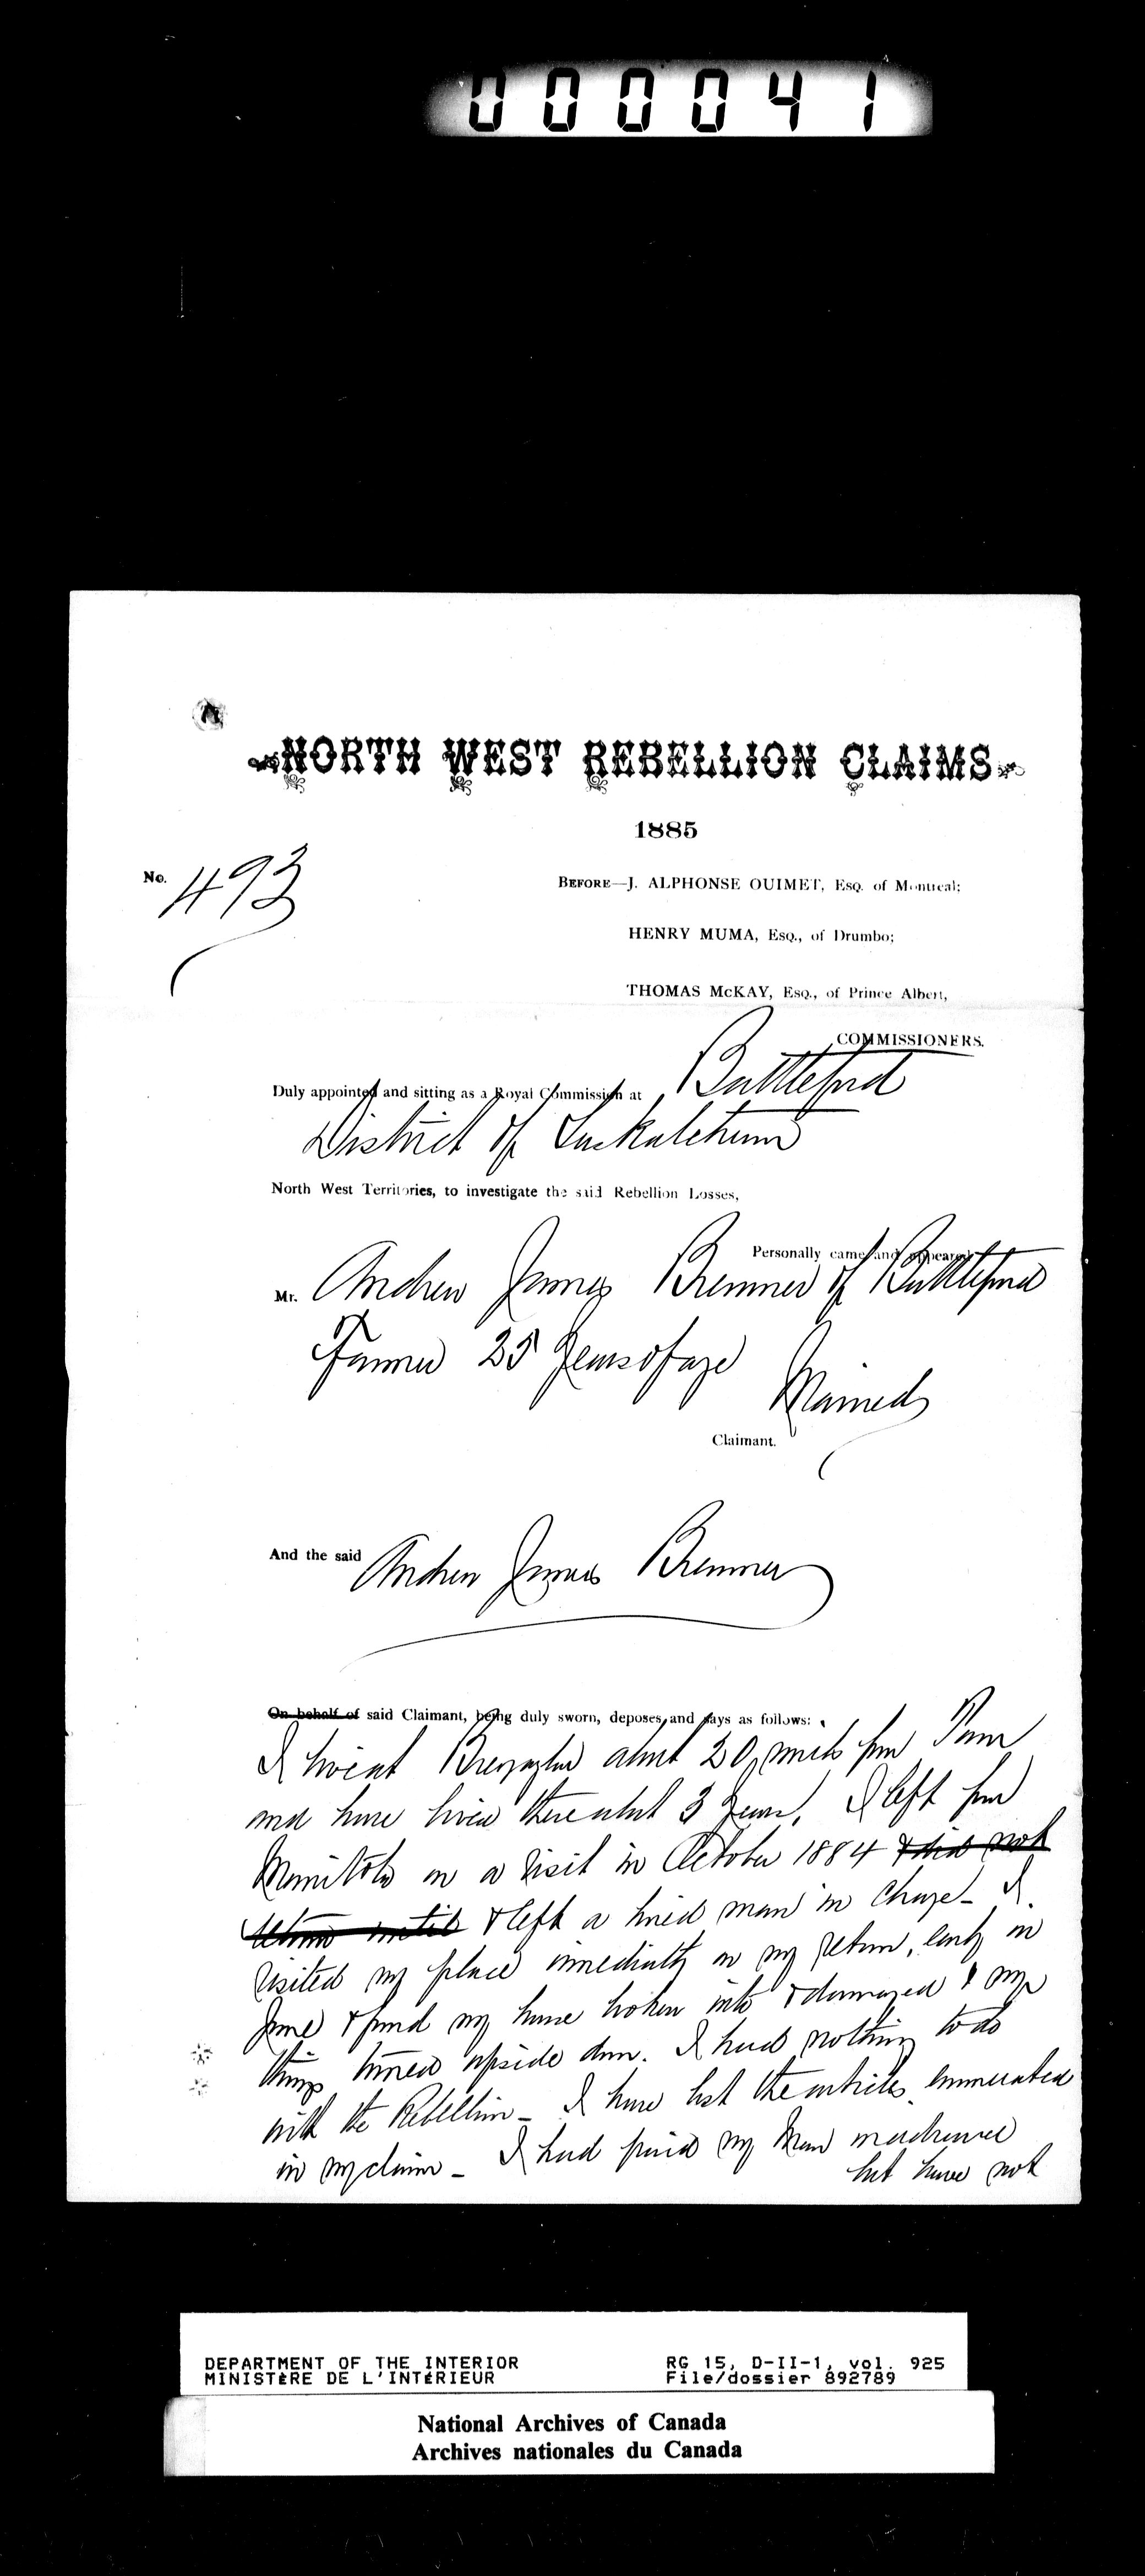 000041
NORTH WEST REBELLION CLAIMS
1885
No. 493
BEFORE—J. ALPHONSE OUIMET, Esq. of Montreal;
HENRY MUMA, Esq., of Drumbo;
THOMAS McKAY, Esq., of Prince Albert,
COMMISSIONERS.
Duly appointed and sitting as a Royal Commission at Battleford
District of Saskatchewan
North West Territories, to investigate the said Rebellion Losses,
Personally came and appeared
Mr. Andrew James Bremner of Battleford
Farmer 25 Years of age
Married
Claimant.
And the said Andrew James Bremner
On behalf of said Claimant, being duly sworn, deposes and says as follows:
I live at about 20 miles from Town
and have lived there about 3 Years, I left for
Manitoba on a visit in October 1884 & did not
return until & left a hired man in charge - I
visited my place immediately on my return, early in
June & found my house broken into & damaged & my
things turned upside down. I had nothing to do
with the Rebellion - I have lost the articles enumerated
in my claim - I had paid my Man
but have not
DEPARTMENT OF THE INTERIOR
MINISTÈRE DE L'INTÉRIEUR
RG 15, D-II-1, vol. 925
File/dossier 892789
National Archives of Canada
Archives nationales du Canada